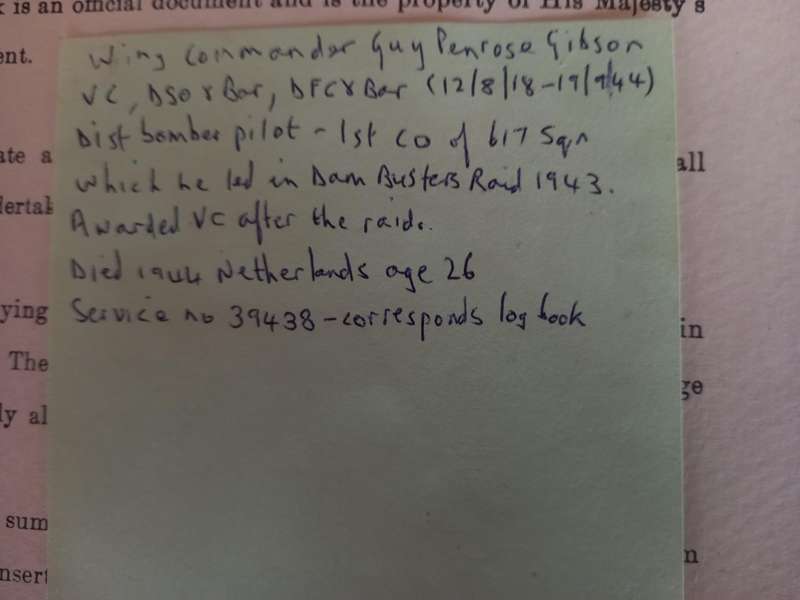 k is an official document and is the property of His Majesty's
ent.
Wing Commander Guy Penrose Gibson
VC, DSO & Bar, DFC & Bar (12/8/18-19/9/44)
Dist bomber pilot - 1st CO of 617 Sqn
ate a
all
which he led in Dam Busters Raid 1943.
dertak
Awarded VC after the raid.
Died 1944 Netherlands age 26
ying
Service no 39438 - corresponds log book
in
The
ge
ly al
sum
n
nsert